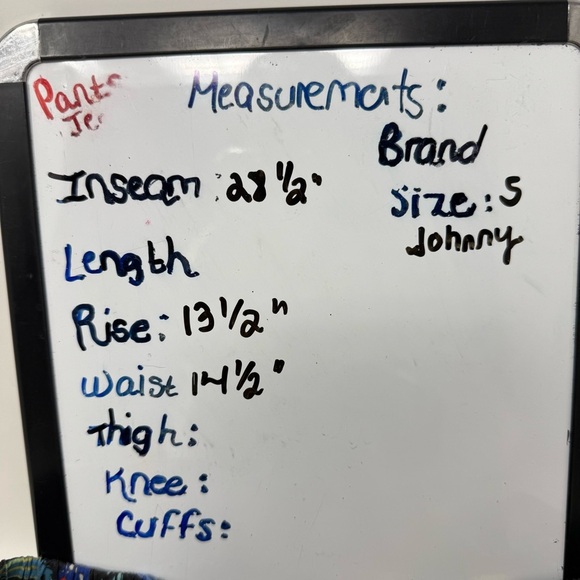 Pants
Je
Measurements:
Brand
Size: S
Johnny
Inseam: 28 1/2"
Length
Rise: 13 1/2"
Waist 14 1/2"
Thigh:
Knee:
Cuffs: